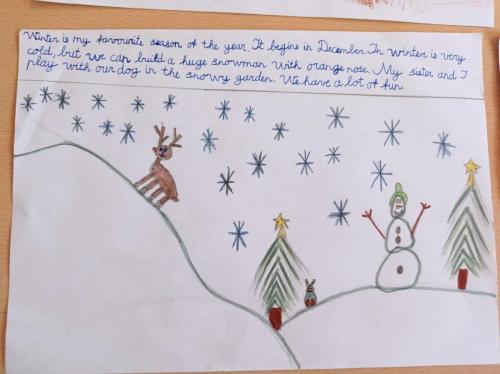 Winter is my favourite season of the year. It begins in December. In winter is very
cold, but we can build a huge snowman with orange nose. My sister and I
play with our dog in the snowy garden. We have a lot of fun.